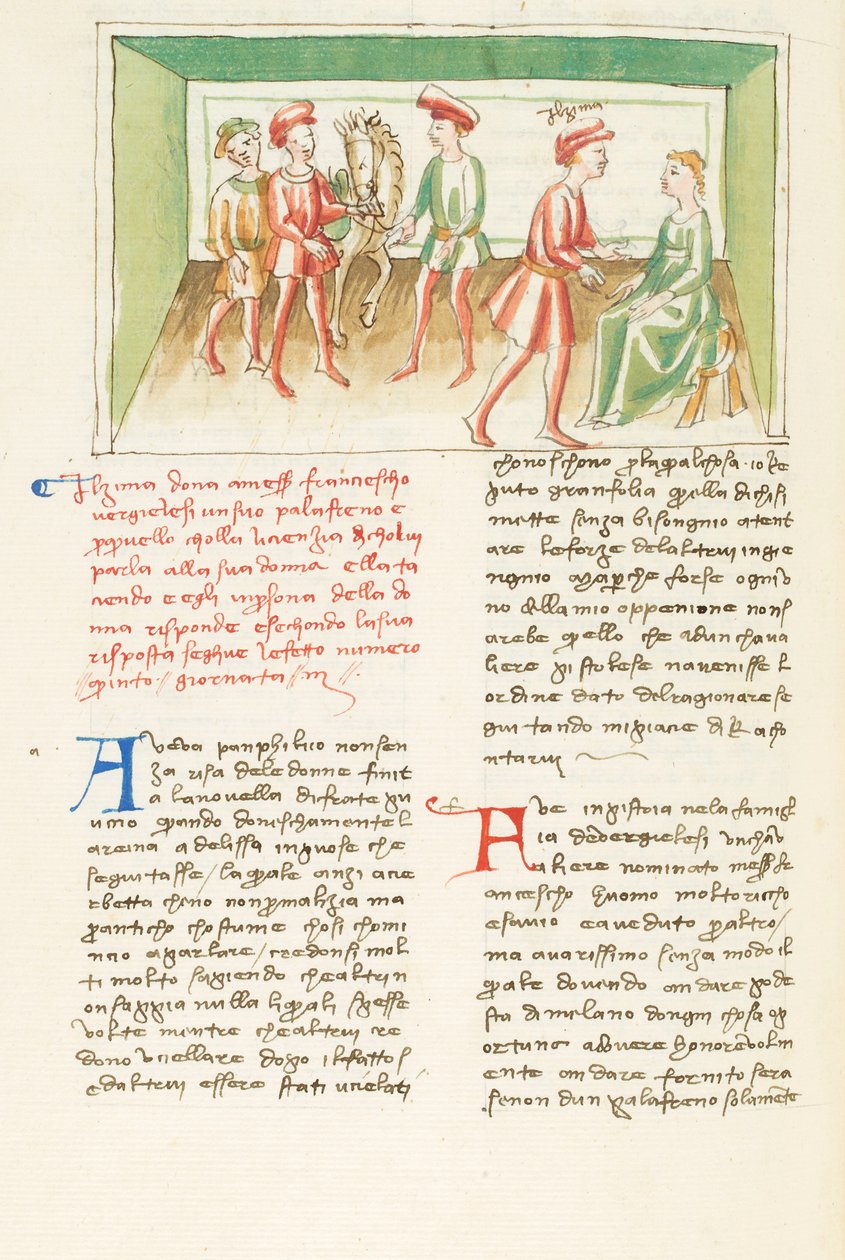 Ilzima
Ilzima dona amess francescho
vergielesi un suo palafreno e
p quello cholla licienzia di cholui
parla alla sua donna ella ta
ciendo e egli in psona della do
nna risponde e sechondo la sua
risposta seghue lefetto numero
quinto giornata iii
Aveva panphilico non sen
za risa dele donne finit
a la novella di frate pu
ccio quando doneschamente l
a reina a delissa inpuose che
seguitasse / la quale anzi acie
rbetta cheno non p malizia ma
p anticho chostume chosi chomi
ncio a parlare / credonsi mol
ti molto sapiendo che altri n
on sappia nulla li quali spesse
volte mentre che altrui cre
dono uciellare dopo il fatto s
e daltrui essere stati ucielati
chonoschono p la qual chosa io re
puto gran folia quella di chi si
mette senza bisongnio a tent
are le forze delaltrui ingie
ngnio ma pche forse ogniu
no della mio oppenione non s
arebe quello che adun chava
liere pistolese navenisse l
ordine dato del ragionare se
guitando mi piacie di racho
ntarvi
a
Ave in pistoia nela famigl
ia de vergielesi un chav
aliere nominato mess fr
ancescho huomo molto riccho
e savio e aveduto p altro /
ma avarissimo senza modo il
quale dovendo andare pode
sta di melano dongni chosa op
ortuna a dovere honorevolm
ente andare fornito sera
se non dun palafreno solamente